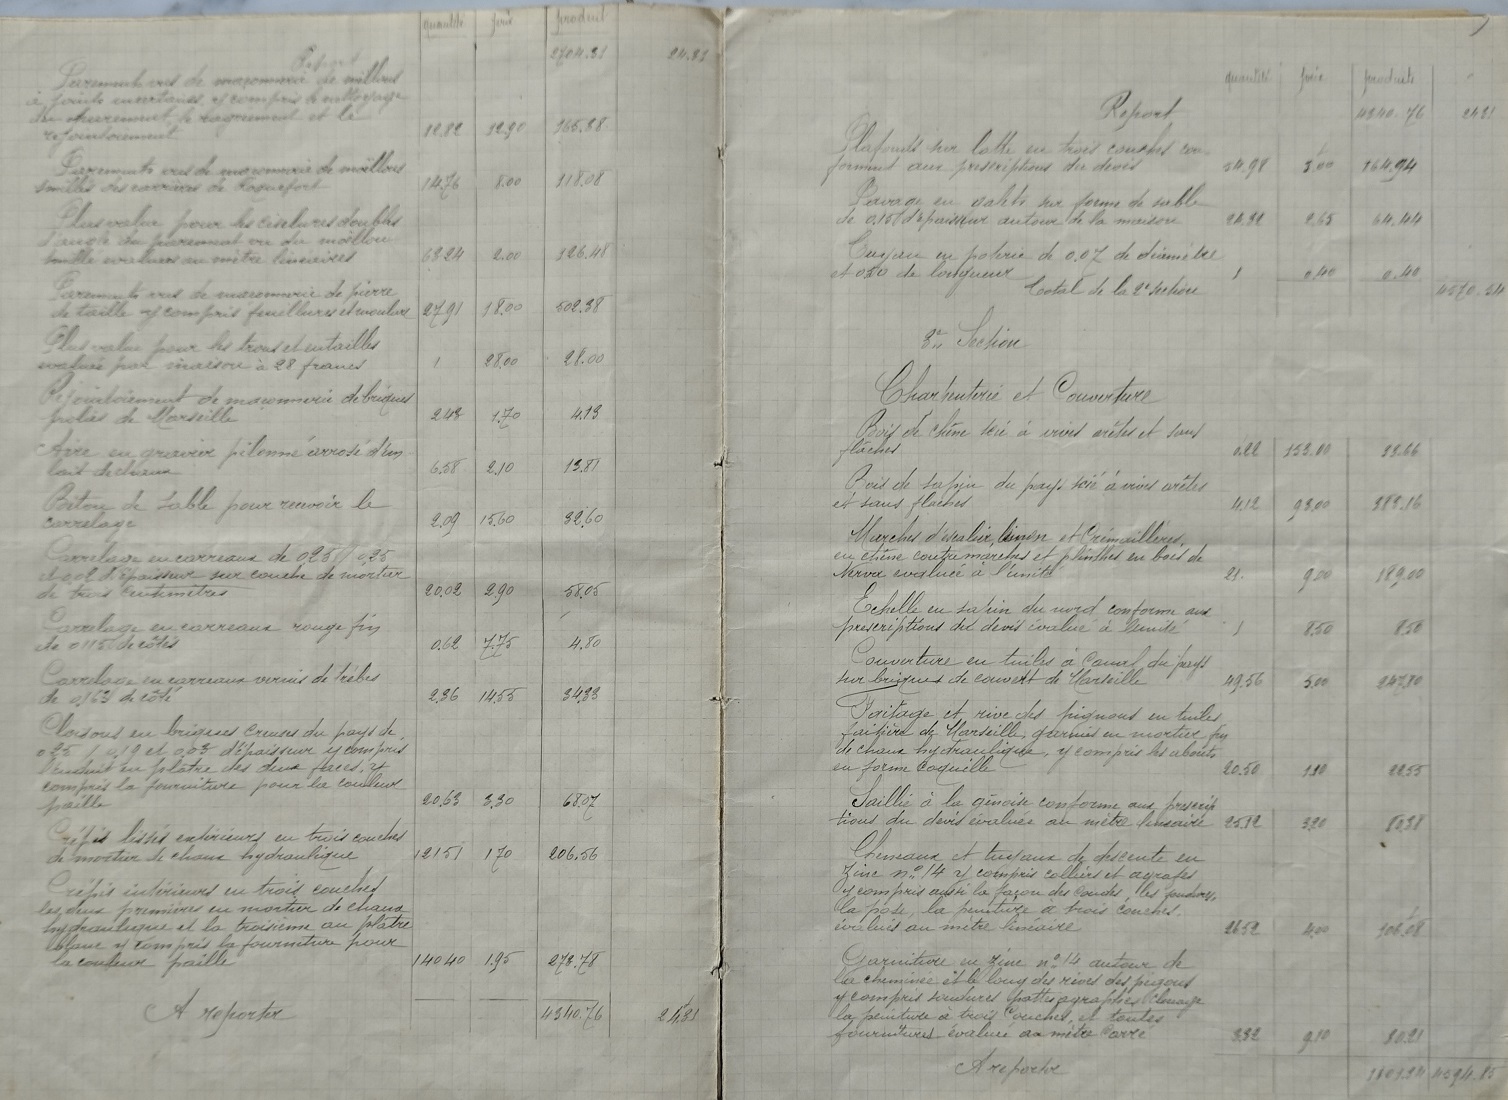 quantité prix produit
Report 2704.31 24.31
Parements vus de maçonnerie de moëllons
à joints incertains, y compris le nettoyage
du parement, le ragrément et le
rejointoiement 12.82 12.90 165.38
Parements vus de maçonnerie de moëllons
smillés des carrières de Roquefort 14.76 8.00 118.08
Plus value pour les ciselures doubles
d'angle du parement vu du moëllon
smillé évaluées au mètre linéaires 63.24 2.00 126.48
Parements vus de maçonnerie de pierre
de taille y compris feuillures et moulures 27.91 18.00 502.38
Plus value pour les trous et entailles
évaluée par maison à 28 francs 1 28.00 28.00
Rejointoiement de maçonnerie de briques
polies de Marseille 2.43 1.70 4.13
Aire en gravier pilonné arrosé d'un
lait de chaux 6.58 2.10 13.81
Béton de sable pour recevoir le
carrelage 2.09 15.60 32.60
Carrelage en carreaux de 0,25 / 0,25
et 0,02 d'épaisseur sur couche de mortier
de trois centimètres 20.02 2.90 58.05
Carrelage en carreaux rouge fin
de 0,115 de côtés 0.62 7.75 4.80
Carrelage en carreaux vernis de trèbes
de 0,163 de côté 2.36 14.55 34.33
Cloisons en briques creuses du pays de
0,25 / 0,19 et 0,03 d'épaisseur y compris
l'enduit en plâtre des deux faces, y
compris la fourniture pour la couleur
paille 20.63 3.30 68.07
Crépis lisses extérieurs en trois couches
de mortier de chaux hydraulique 121.51 1.70 206.56
Crépis intérieurs en trois couches
les deux premières en mortier de chaux
hydraulique et la troisième au plâtre
blanc y compris la fourniture pour
la couleur paille 140.40 1.95 273.78
A reporter 4340.76 24.31
quantités prix produits
Report 4340.76 24.31
Plafonds sur latte en trois couches con-
formément aux prescriptions du devis 54.98 3.00 164.94
Pavage en galets sur forme de sable
de 0,15 d'épaisseur autour de la maison 24.32 2.65 64.44
Tuyau en poterie de 0.07 de diamètre
et 0.50 de longueur 1 0.40 0.40
Total de la 2e section 4570.54
3e Section
Charpenterie et Couverture
Bois de chêne scié à vives arêtes et sans
flaches 0.22 153.00 33.66
Bois de sapin du pays scié à vives arêtes
et sans flaches 4.12 93.00 383.16
Marches d'escalier, limon et Crémaillères,
en chêne contremarches et plinthes en bois de
Nerva évaluée à l'unité 21. 9.00 189.00
Echelle en sapin du nord conforme aux
prescriptions du devis évalué à l'unité 1 8.50 8.50
Couverture en tuiles à canal du pays
sur briques de couvert de Marseille 49.56 5.00 247.80
Faitage et rive des pignons en tuiles
faitière de Marseille, garnies en mortier fin
de chaux hydraulique, y compris les abouts
en forme coquille 20.50 1.10 22.55
Saillie à la génoise conforme aux prescrip
tions du devis évaluée au mètre linéaire 25.12 3.20 80.38
Chéneaux et tuyaux de descente en
zinc n° 14 y compris colliers et agrafes
y compris aussi la façon des coudes, les soudures,
la pose, la peinture à trois couches.
évalués au mètre linéaire 26.52 4.00 106.08
Garniture en zinc n° 14 autour de
la cheminée et le long des rives des pignons
y compris soudures pattes agraphes clouage
la peinture à trois couches, et toutes
fournitures évaluée au mètre carré 3.32 9.10 30.21
A reporter 1101.34 4594.85